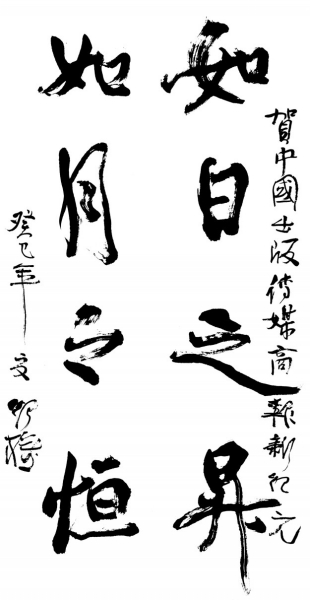 賀中國出版傳媒商報新紀元
如日之昇
如月之恒
癸巳年